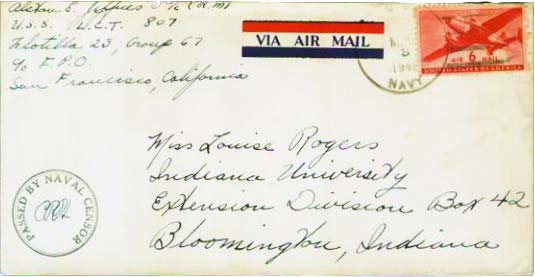 U.S.S. L.C.T. 807
Flotilla 23, Group 67
San Francisco, California
VIA AIR MAIL
NAVY
AIR 6 MAIL
UNITED STATES OF AMERICA
Miss Louise Rogers
Indiana University
Extension Division Box 42
Bloomington, Indiana
PASSED BY NAVAL CENSOR